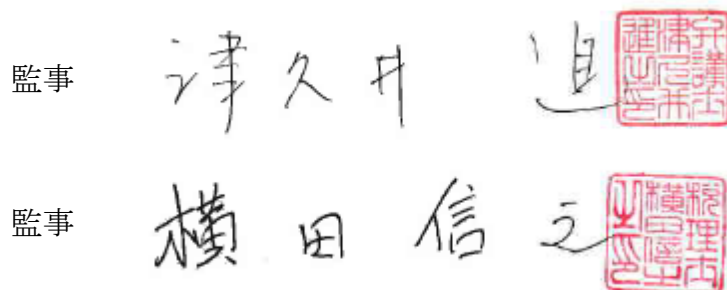 監事 津久井 進
弁護士
津久井
進之印
監事 横田 信之
税理士
横田信之
之印